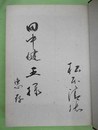 田中健五様
恵存
松本清張